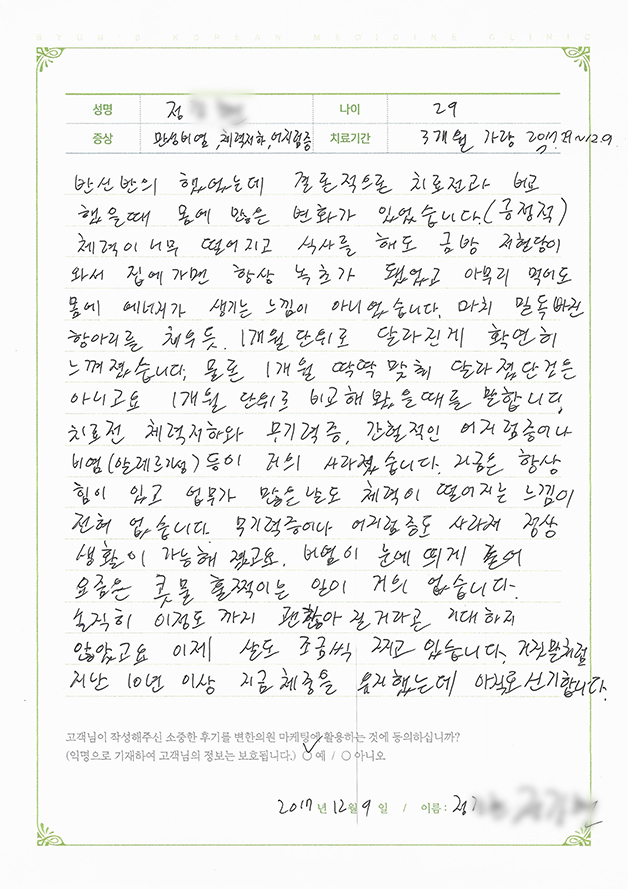 BYUN'S KOREAN MEDICINE CLINIC
성명 정 나이 29
증상 만성비염, 체력저하, 어지럼증 치료기간 3개월 가량 2017. ~12.9
반신반의 했었는데 결론적으로 치료전과 비교
했을때 몸에 많은 변화가 있었습니다.(긍정적)
체력이 너무 떨어지고 식사를 해도 금방 저혈당이
와서 집에가면 항상 녹초가 됐었고 아무리 먹어도
몸에 에너지가 생기는 느낌이 아니었습니다. 마치 밑독빠진
항아리를 채우듯. 1개월 단위로 달라진게 확연히
느껴졌습니다. 물론 1개월 딱딱 맞춰 달라졌단건은
아니고요 1개월 단위로 비교해 봤을때를 말합니다.
치료전 체력저하와 무기력증, 간헐적인 어지럼증이나
비염(알레르기성) 등이 거의 사라졌습니다. 지금은 항상
힘이 있고 업무가 많은날도 체력이 떨어지는 느낌이
전혀 없습니다. 무기력증이나 어지럼증도 사라져 정상
생활이 가능해 졌고요. 비염이 눈에 띄게 줄어
요즘은 콧물 훌쩍이는 일이 거의 없습니다.
솔직히 이정도 까지 괜찮아 질거라곤 기대하지
않았고요 이제 살도 조금씩 찌고 있습니다. 거짓말처럼
지난 10년 이상 지금 체중을 유지했는데 아직도 신기합니다.
고객님이 작성해주신 소중한 후기를 변한의원 마케팅에 활용하는 것에 동의하십니까?
(익명으로 기재하여 고객님의 정보는 보호됩니다.) ○ 예 / ○ 아니오
2017 년 12 월 9 일 / 이름 : 정